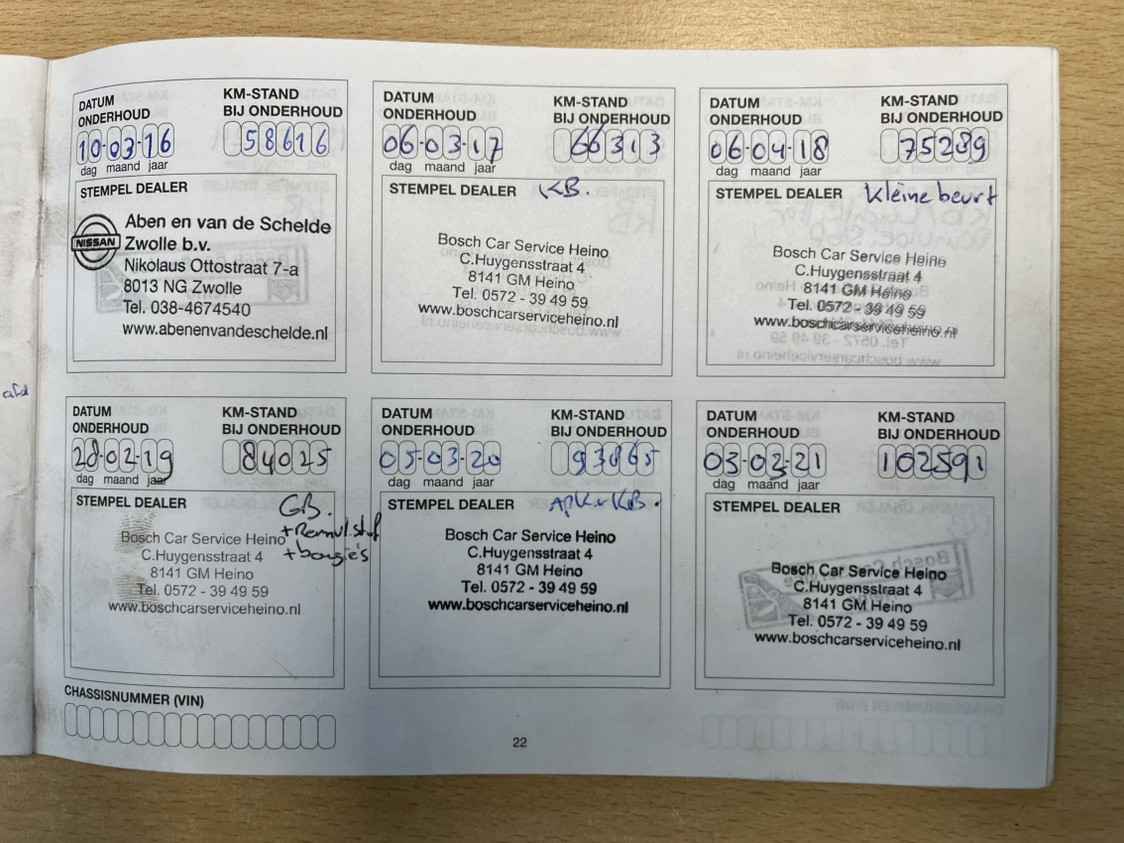 DATUM
ONDERHOUD
KM-STAND
BIJ ONDERHOUD
10-03-16
58616
dag maand jaar
STEMPEL DEALER
NISSAN
Aben en van de Schelde
Zwolle b.v.
Nikolaus Ottostraat 7-a
8013 NG Zwolle
Tel. 038-4674540
www.abenenvandeschelde.nl
DATUM
ONDERHOUD
KM-STAND
BIJ ONDERHOUD
06-03-17
66313
dag maand jaar
STEMPEL DEALER
KB.
Bosch Car Service Heino
C.Huygensstraat 4
8141 GM Heino
Tel. 0572 - 39 49 59
www.boschcarserviceheino.nl
DATUM
ONDERHOUD
KM-STAND
BIJ ONDERHOUD
06-04-18
75289
dag maand jaar
STEMPEL DEALER
Kleine beurt
Bosch Car Service Heino
C.Huygensstraat 4
8141 GM Heino
Tel. 0572 - 39 49 59
www.boschcarserviceheino.nl
DATUM
ONDERHOUD
KM-STAND
BIJ ONDERHOUD
28-02-19
84025
dag maand jaar
STEMPEL DEALER
GB.
+bougie's
Bosch Car Service Heino
C.Huygensstraat 4
8141 GM Heino
Tel. 0572 - 39 49 59
www.boschcarserviceheino.nl
DATUM
ONDERHOUD
KM-STAND
BIJ ONDERHOUD
05-03-20
93865
dag maand jaar
STEMPEL DEALER
APK + KB.
Bosch Car Service Heino
C.Huygensstraat 4
8141 GM Heino
Tel. 0572 - 39 49 59
www.boschcarserviceheino.nl
DATUM
ONDERHOUD
KM-STAND
BIJ ONDERHOUD
03-03-21
102591
dag maand jaar
STEMPEL DEALER
Bosch Car Service Heino
C.Huygensstraat 4
8141 GM Heino
Tel. 0572 - 39 49 59
www.boschcarserviceheino.nl
CHASSISNUMMER (VIN)
22